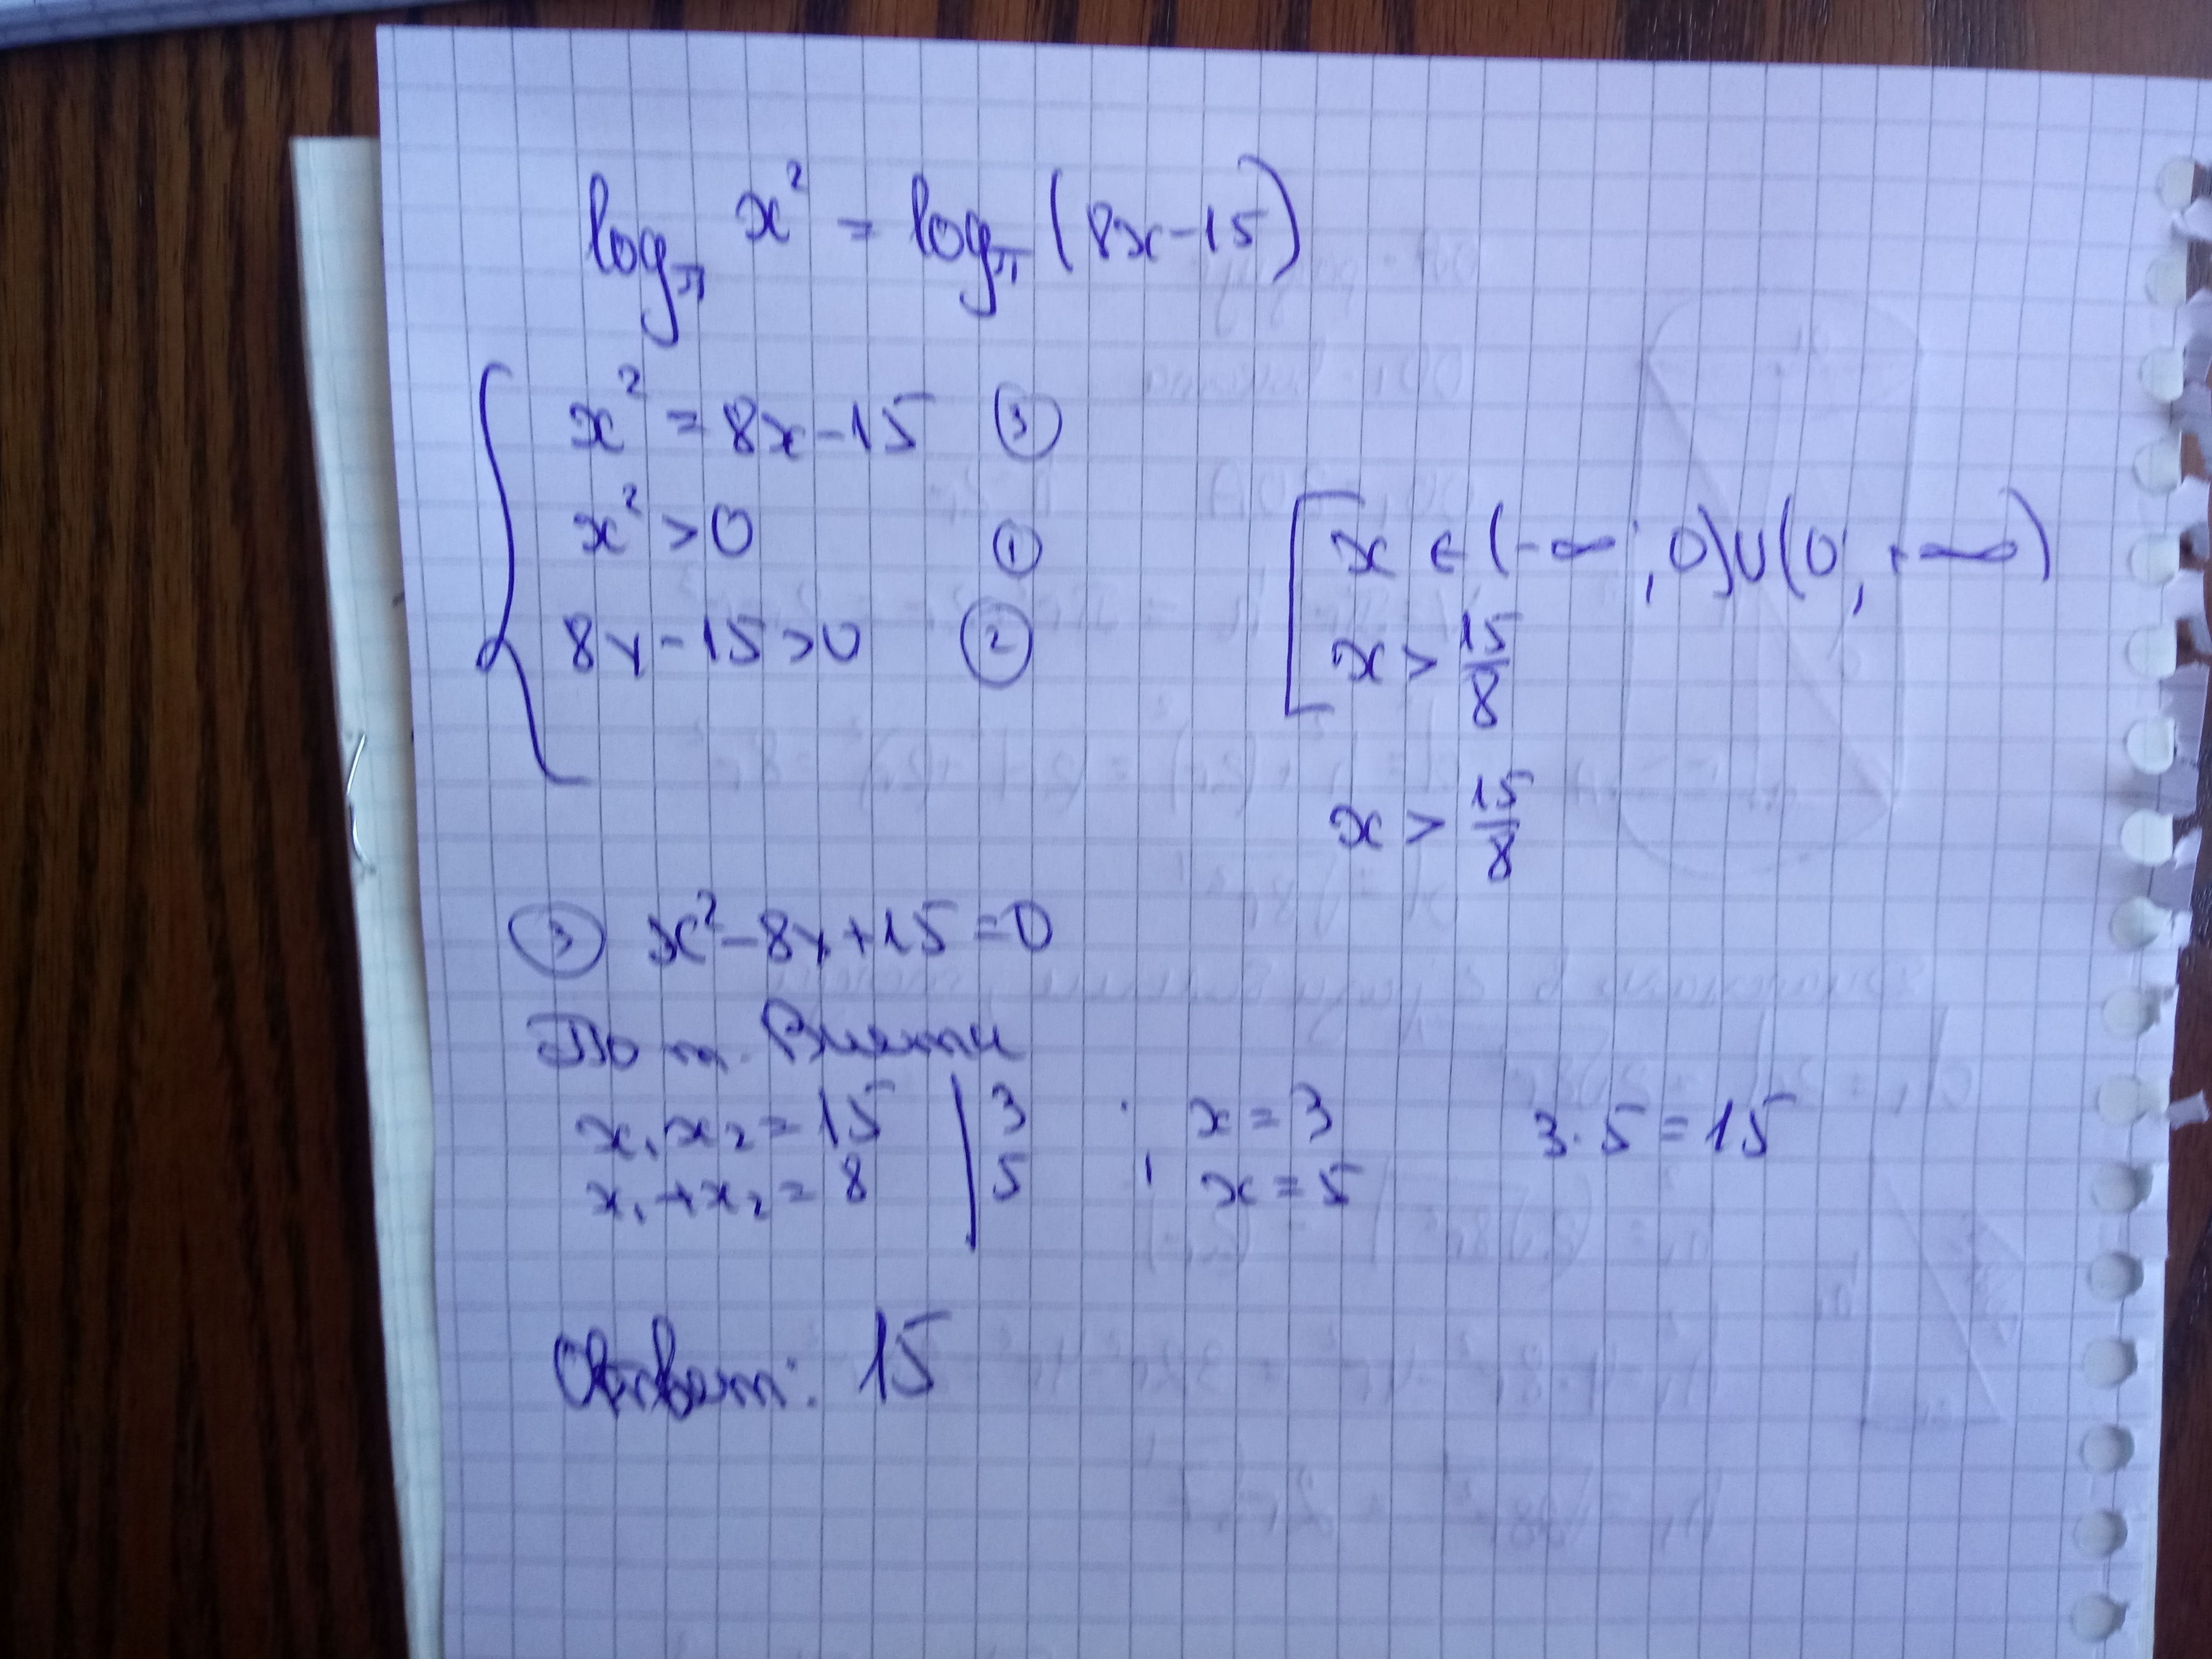 log_π x² = log_π (8x-15)
x² = 8x-15 ③
x² > 0 ①
8x-15>0 ②
x ∈ (-∞; 0)∪(0; +∞)
x > 15/8
x > 15/8
③ x²-8x+15=0
По т. Виета
x₁x₂=15 | 3
x₁+x₂=8 | 5
x=3
x=5
3·5=15
Ответ: 15